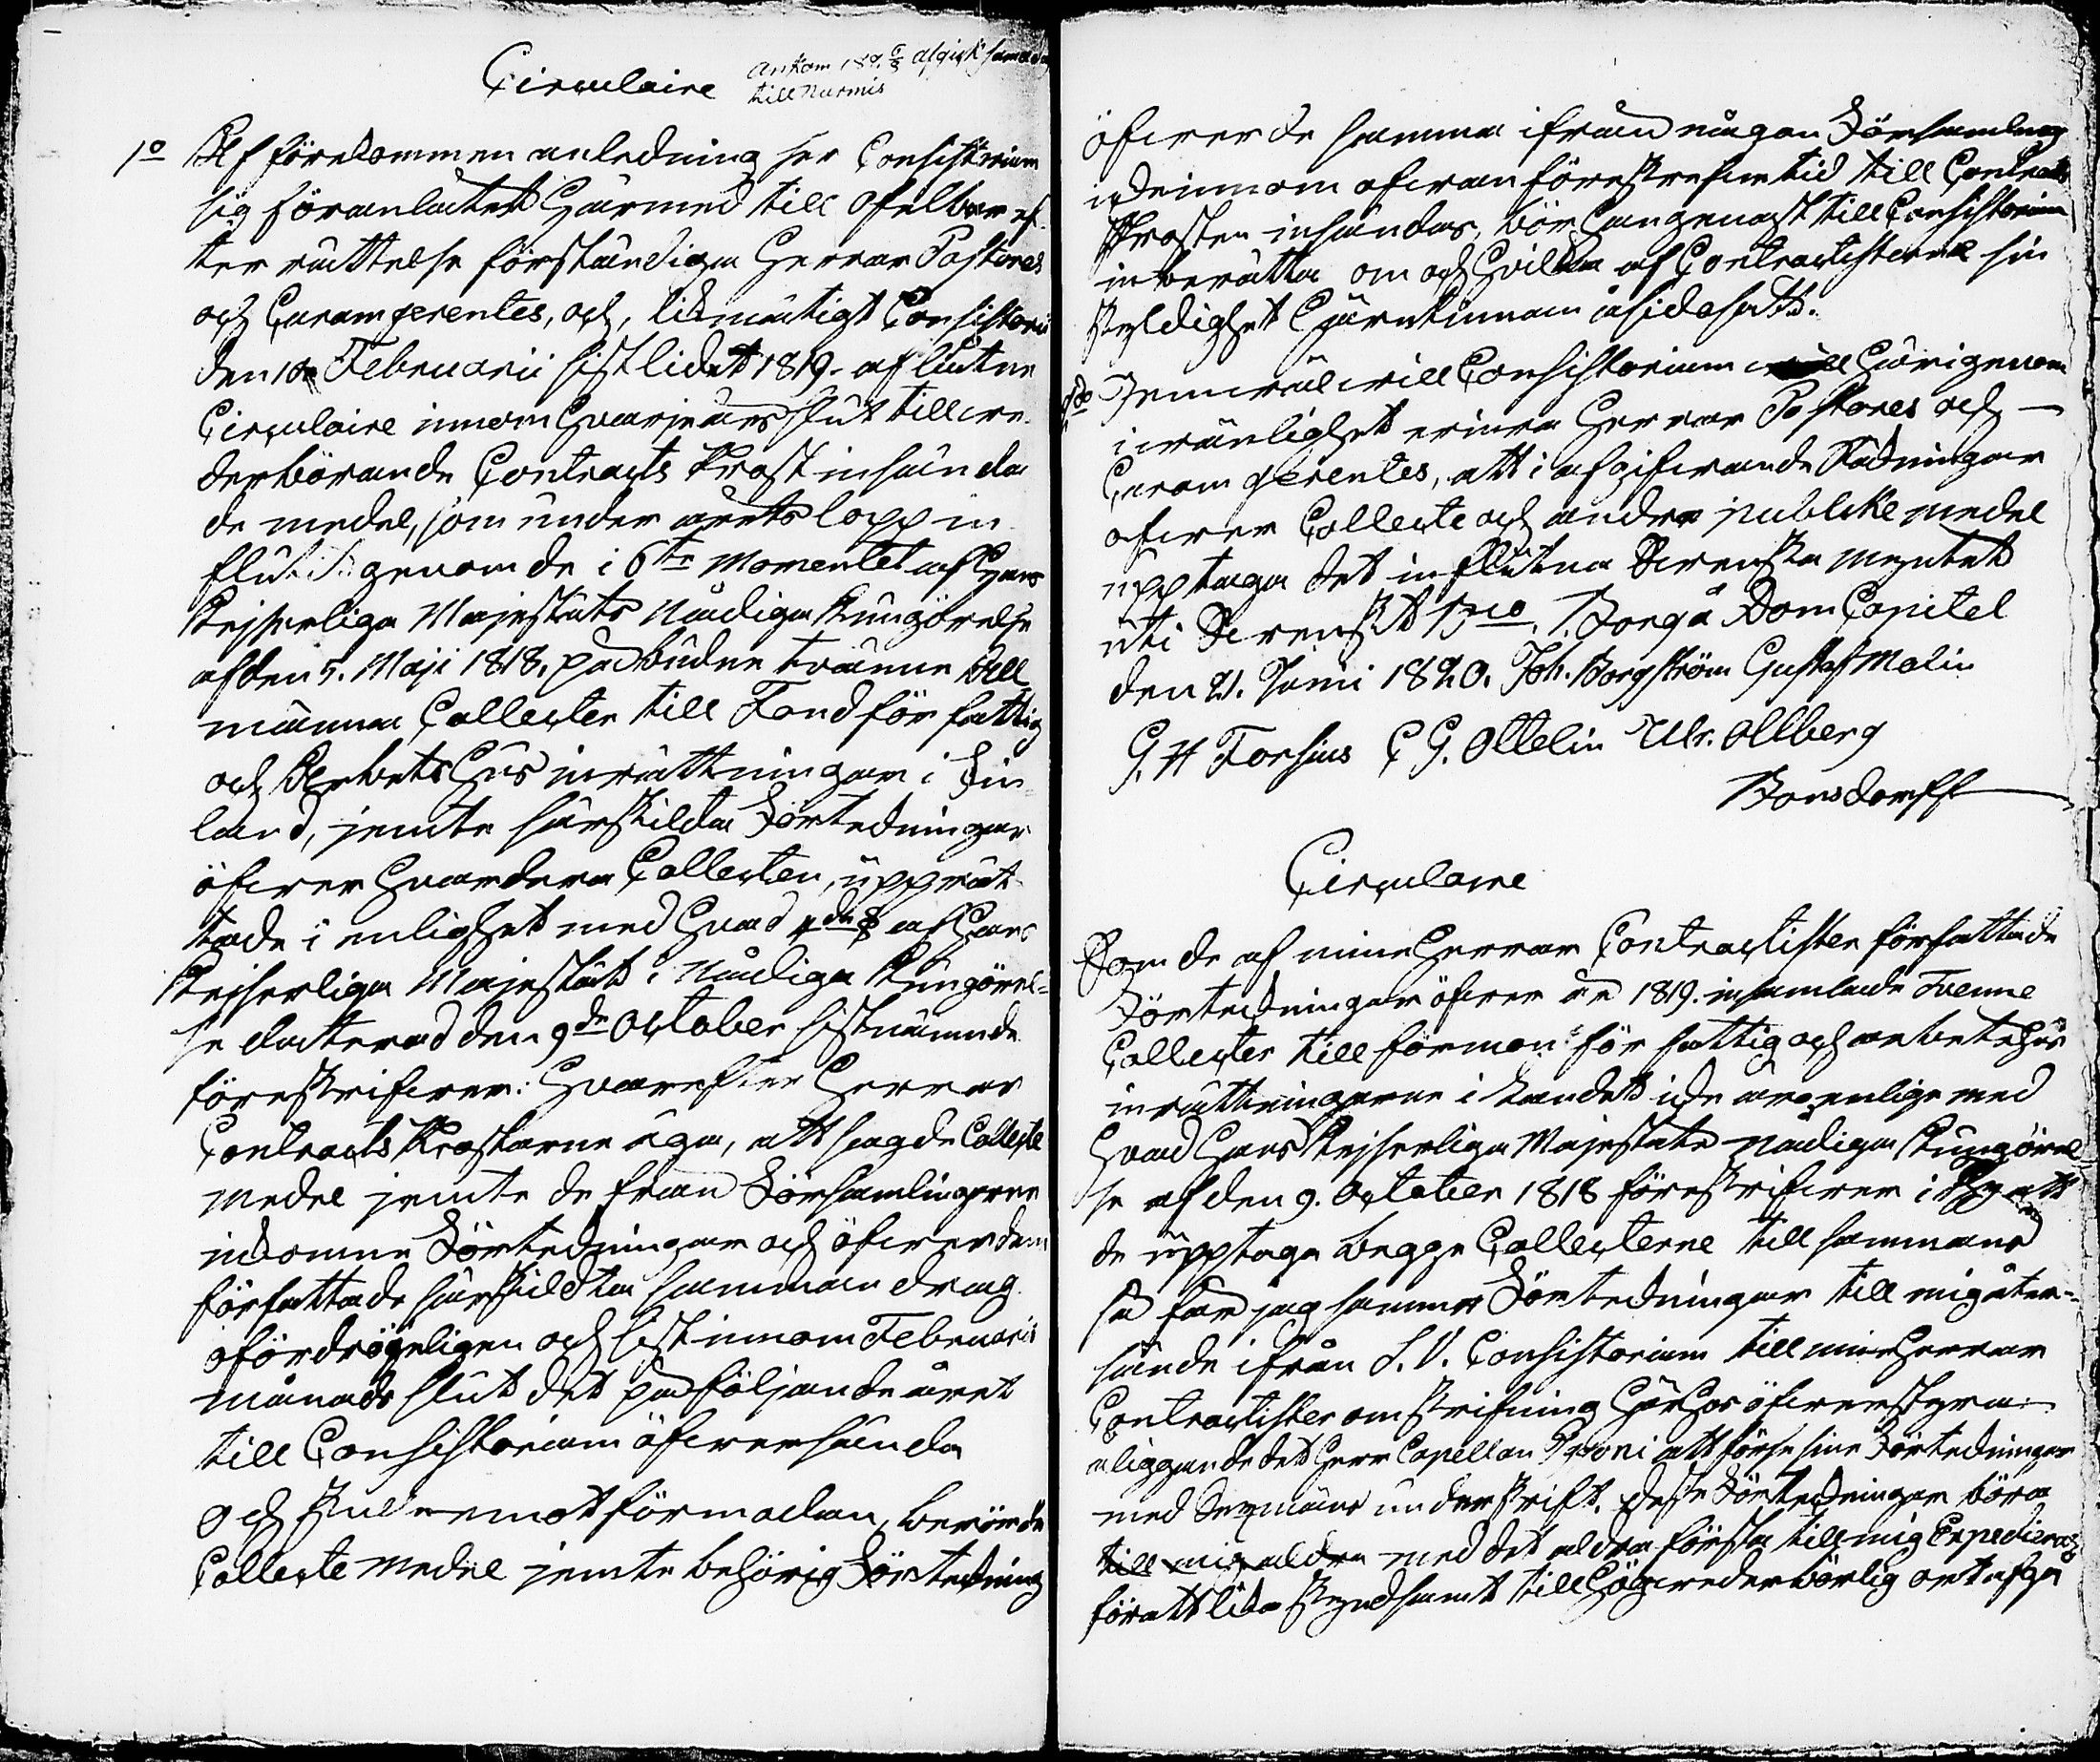 Circulaire
Ankom 18 6/8 afgick samma dag
till Nurmis
1o Af förekommen anledning ser Consistorium
sig föranlåtet härmed till ofelbar ef-
ter rättelse förständiga Herrar Pastores
och Curam gerentes, och, likmätigt Consistorii
den Februarii sistlidet 1819. aflåtne
Circulaire innom hvarje års slut till ve-
derbörande Contracts Prost insända
de medel, som under årets lopp in-
flutit genom de i 6te Momentet af Hans
Kejserliga Majestäts Nådiga Kungörelse
af den 5. Maji 1818. påbudne tvänne All-
männa Collecter till Fond för fattig
och Arbets Hus inrättningar i Fin-
land, jemte särskilda Förtekningar
öfver hvardera Collecten, upprät-
tade i enlighet med hvad 4de § af Hans
Kejserliga Majestäts Nådiga Kungörel-
se daterad den 9de October sistnämnde
föreskrifver: Hvarefter Herrar
Contracts Prostarne äga, att sagde Collecte
medel jemte de från Församlingarne
inkomne Förtekningar och öfver dem
författade särskildta sammandrag
ofördröjeligen och sist innom Februarii
månads slut det påföljande året
till Consistorium öfversända
och skulle emot förmodan, berörde
Collecte medel jemte behörig Förtekning
öfver de samma ifrån någon Församling
icke innom ofvan föreskrefne tid till Contracts
Prosten insändas, bör han genast till Consistorium
inberätta om och hvilka af Contractisterne sin
skyldighet härutinnan åsidosatt.
2do Jemväl vill Consistorium härigenom
i vänlighet erinra Herrar Pastores och
Curam gerentes, att i afgifvande Redningar
öfver Collecte och andre publike medel
upptaga det influtna Svenska myntet
uti Svenskt Bco. Borgå Dom Capitel
den 21. Junii 1820. Joh. Borgström Gustaf Molin
G. H Forsius C G. Ottelin Ulr. Ahlberg
Bonsdorff
Circulaire
Som de af mine Herrar Contractister författade
Förtekningar öfver år 1819. insamlade Tvenne
Collecter till förmon för fattig och arbetshus
inrättningarne i Landet icke äro enlige med
hvad Hans Kejserliga Majestäts nådiga Kungörel-
se af den 9. October 1818 föreskrifver i thy att
de upptaga begge Collecterne till sammans
så får jag samma Förtekningar till mig åter-
sände ifrån S. V. Consistorium till mine Herrar
Contractister omskrifning härhos öfverstyra
åliggande det Herr Capellan Proni att förse sine Förtekningar
med Sexmäns underskrift. Desse Förtekningar böra
till mig aldra med det aldra första till mig Expedieras
för att lika skyndsamt till högvederbörlig ort afgå